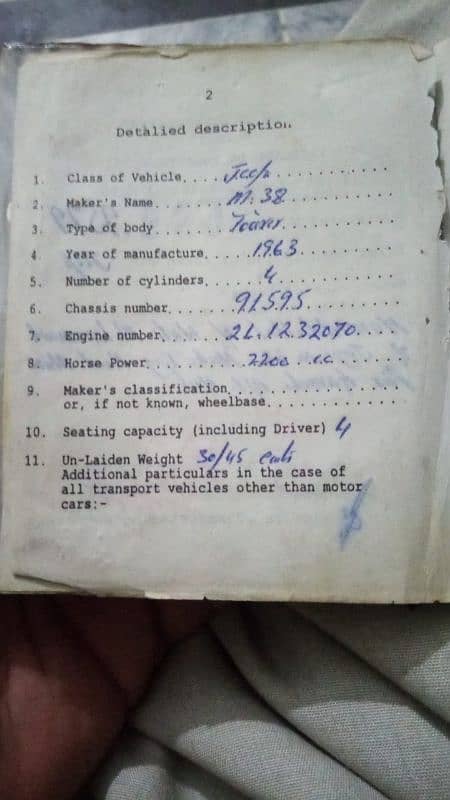 2
Detailed description
1. Class of Vehicle.... Jeep
2. Maker's Name....... M.38
3. Type of body.......
4. Year of manufacture..... 1963
5. Number of cylinders...... 4
6. Chassis number....... 91595
7. Engine number...... 2L.1232070
8. Horse Power....... 2200 cc
9. Maker's classification
or, if not known, wheelbase.............
10. Seating capacity (including Driver) 4
11. Un-Laiden Weight 30/45
Additional particulars in the case of
all transport vehicles other than motor
cars:-